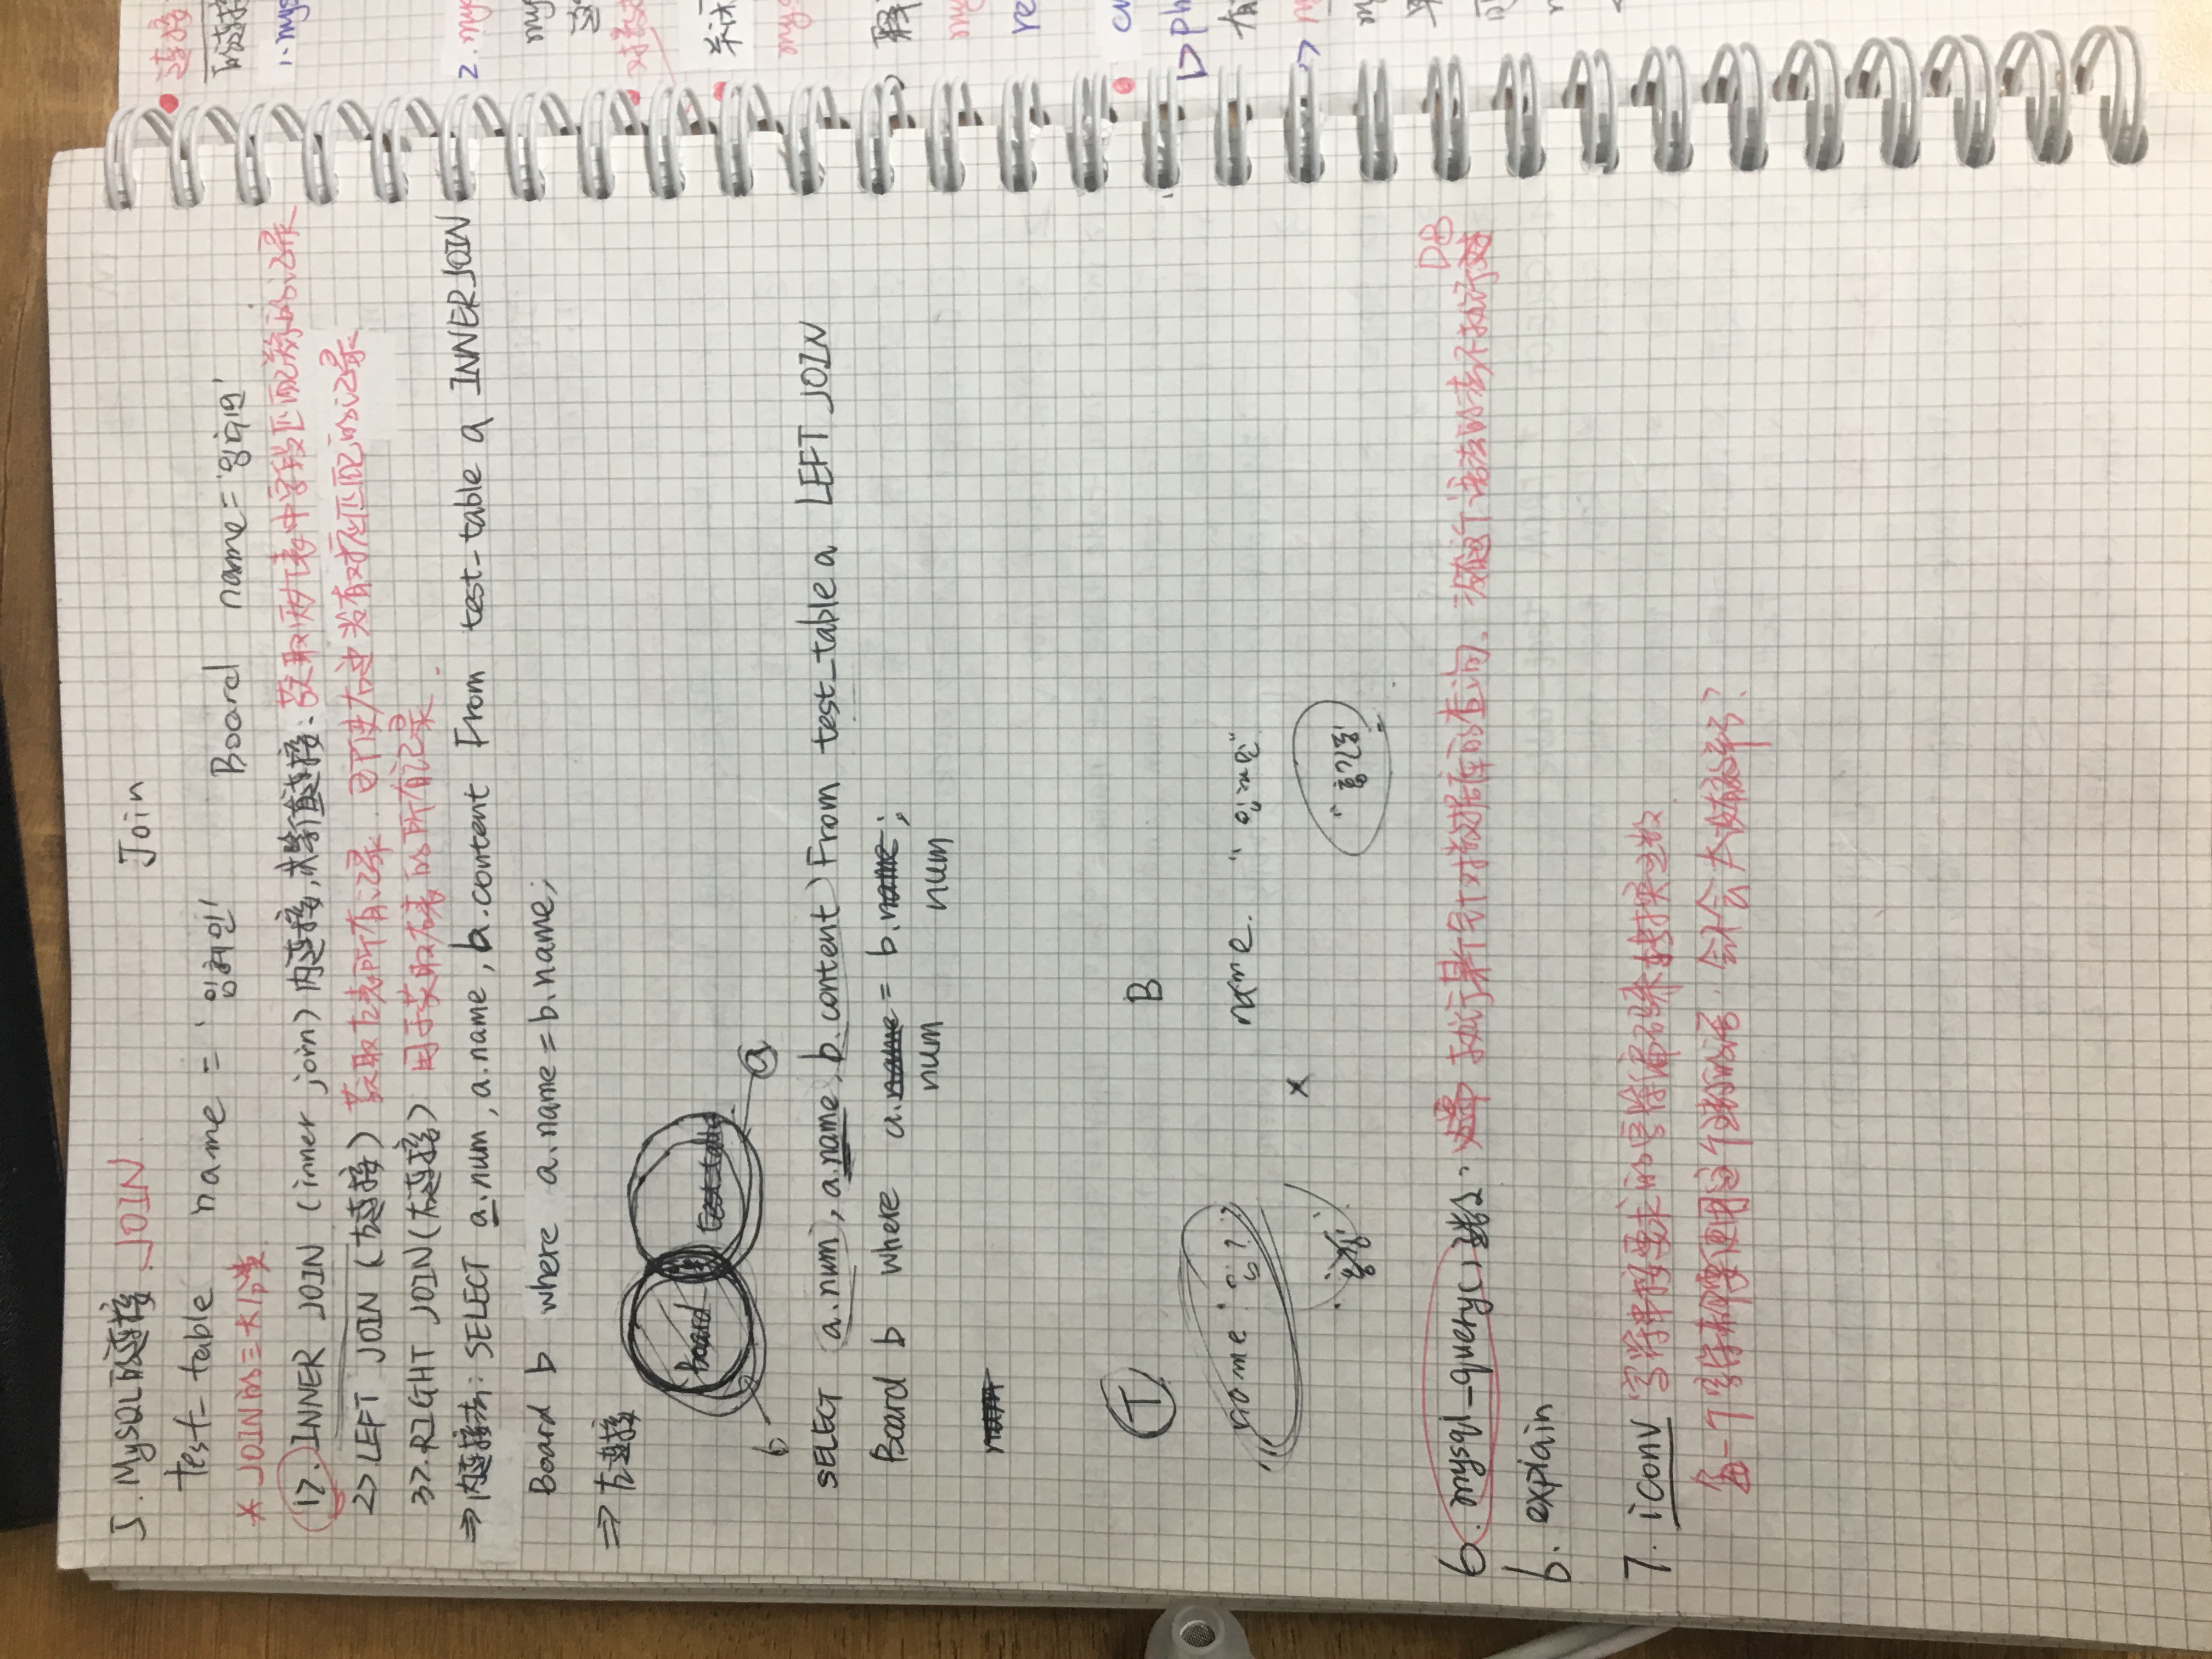 5. MySQL的连接 JOIN
Join
test_table name = '임혜민'
Board name='임혜민'
* JOIN的三大分类
1>. INNER JOIN (inner join) 内连接,或等值连接: 获取两个表中字段匹配关系的记录
2>. LEFT JOIN (左连接) 获取左表所有记录. 即使右边没有对应匹配的记录
3>. RIGHT JOIN (右连接) 用于获取右表的所有记录.
⇒ 内连接法: SELECT a.num, a.name, b.content From test_table a INNER JOIN
Board b where a.name = b.name;
⇒ 左连接
Board test_table
b a
SELECT a.num, a.name, b.content From test_table a LEFT JOIN
Board b where a.name = b.name;
num num
num
T B
name name.
×
"홍길동
6. mysql_query() 函数: 执行某个针对数据库的查询. 没有这个语法的话不执行
DB
6. explain
7. iconv 字符串按要求的字符编码来转换函数
每一个字符都要使用这个函数的话. 会不会太没有效率了?
连接
的连接
1. mys
2. mys
my
对数据
关闭
mys
释
my
re
ph
有
m